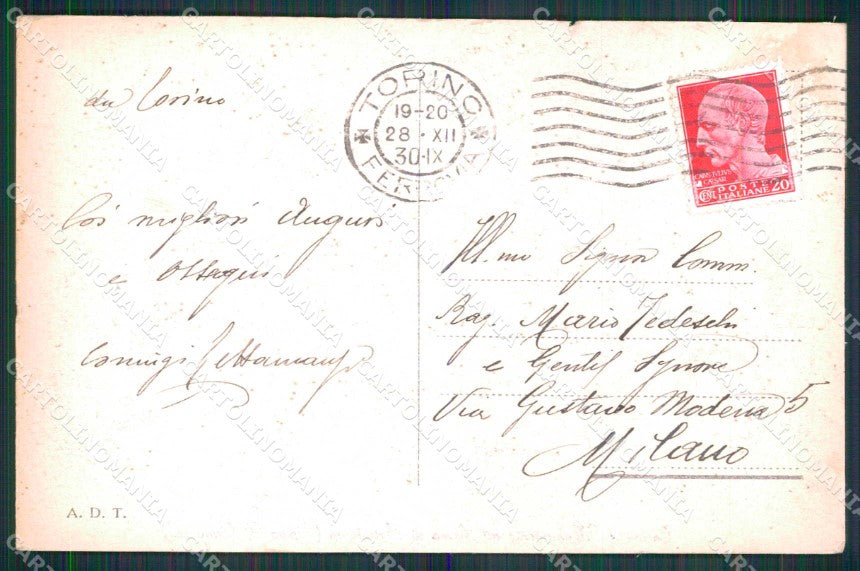 da Torino
coi migliori Auguri
e Ossequi
Coniugi
A. D. T.
TORINO
19-20
28·XII
30·IX
FERROVIA
CAIVS·IVLIVS
CAESAR
CENT. POSTE 20
ITALIANE
Ill.mo Signor Comm.
Rag. Mario Tedeschi
e Gentil Signora
Via Gustavo Modena 5
Milano
CARTOLINOMANIA